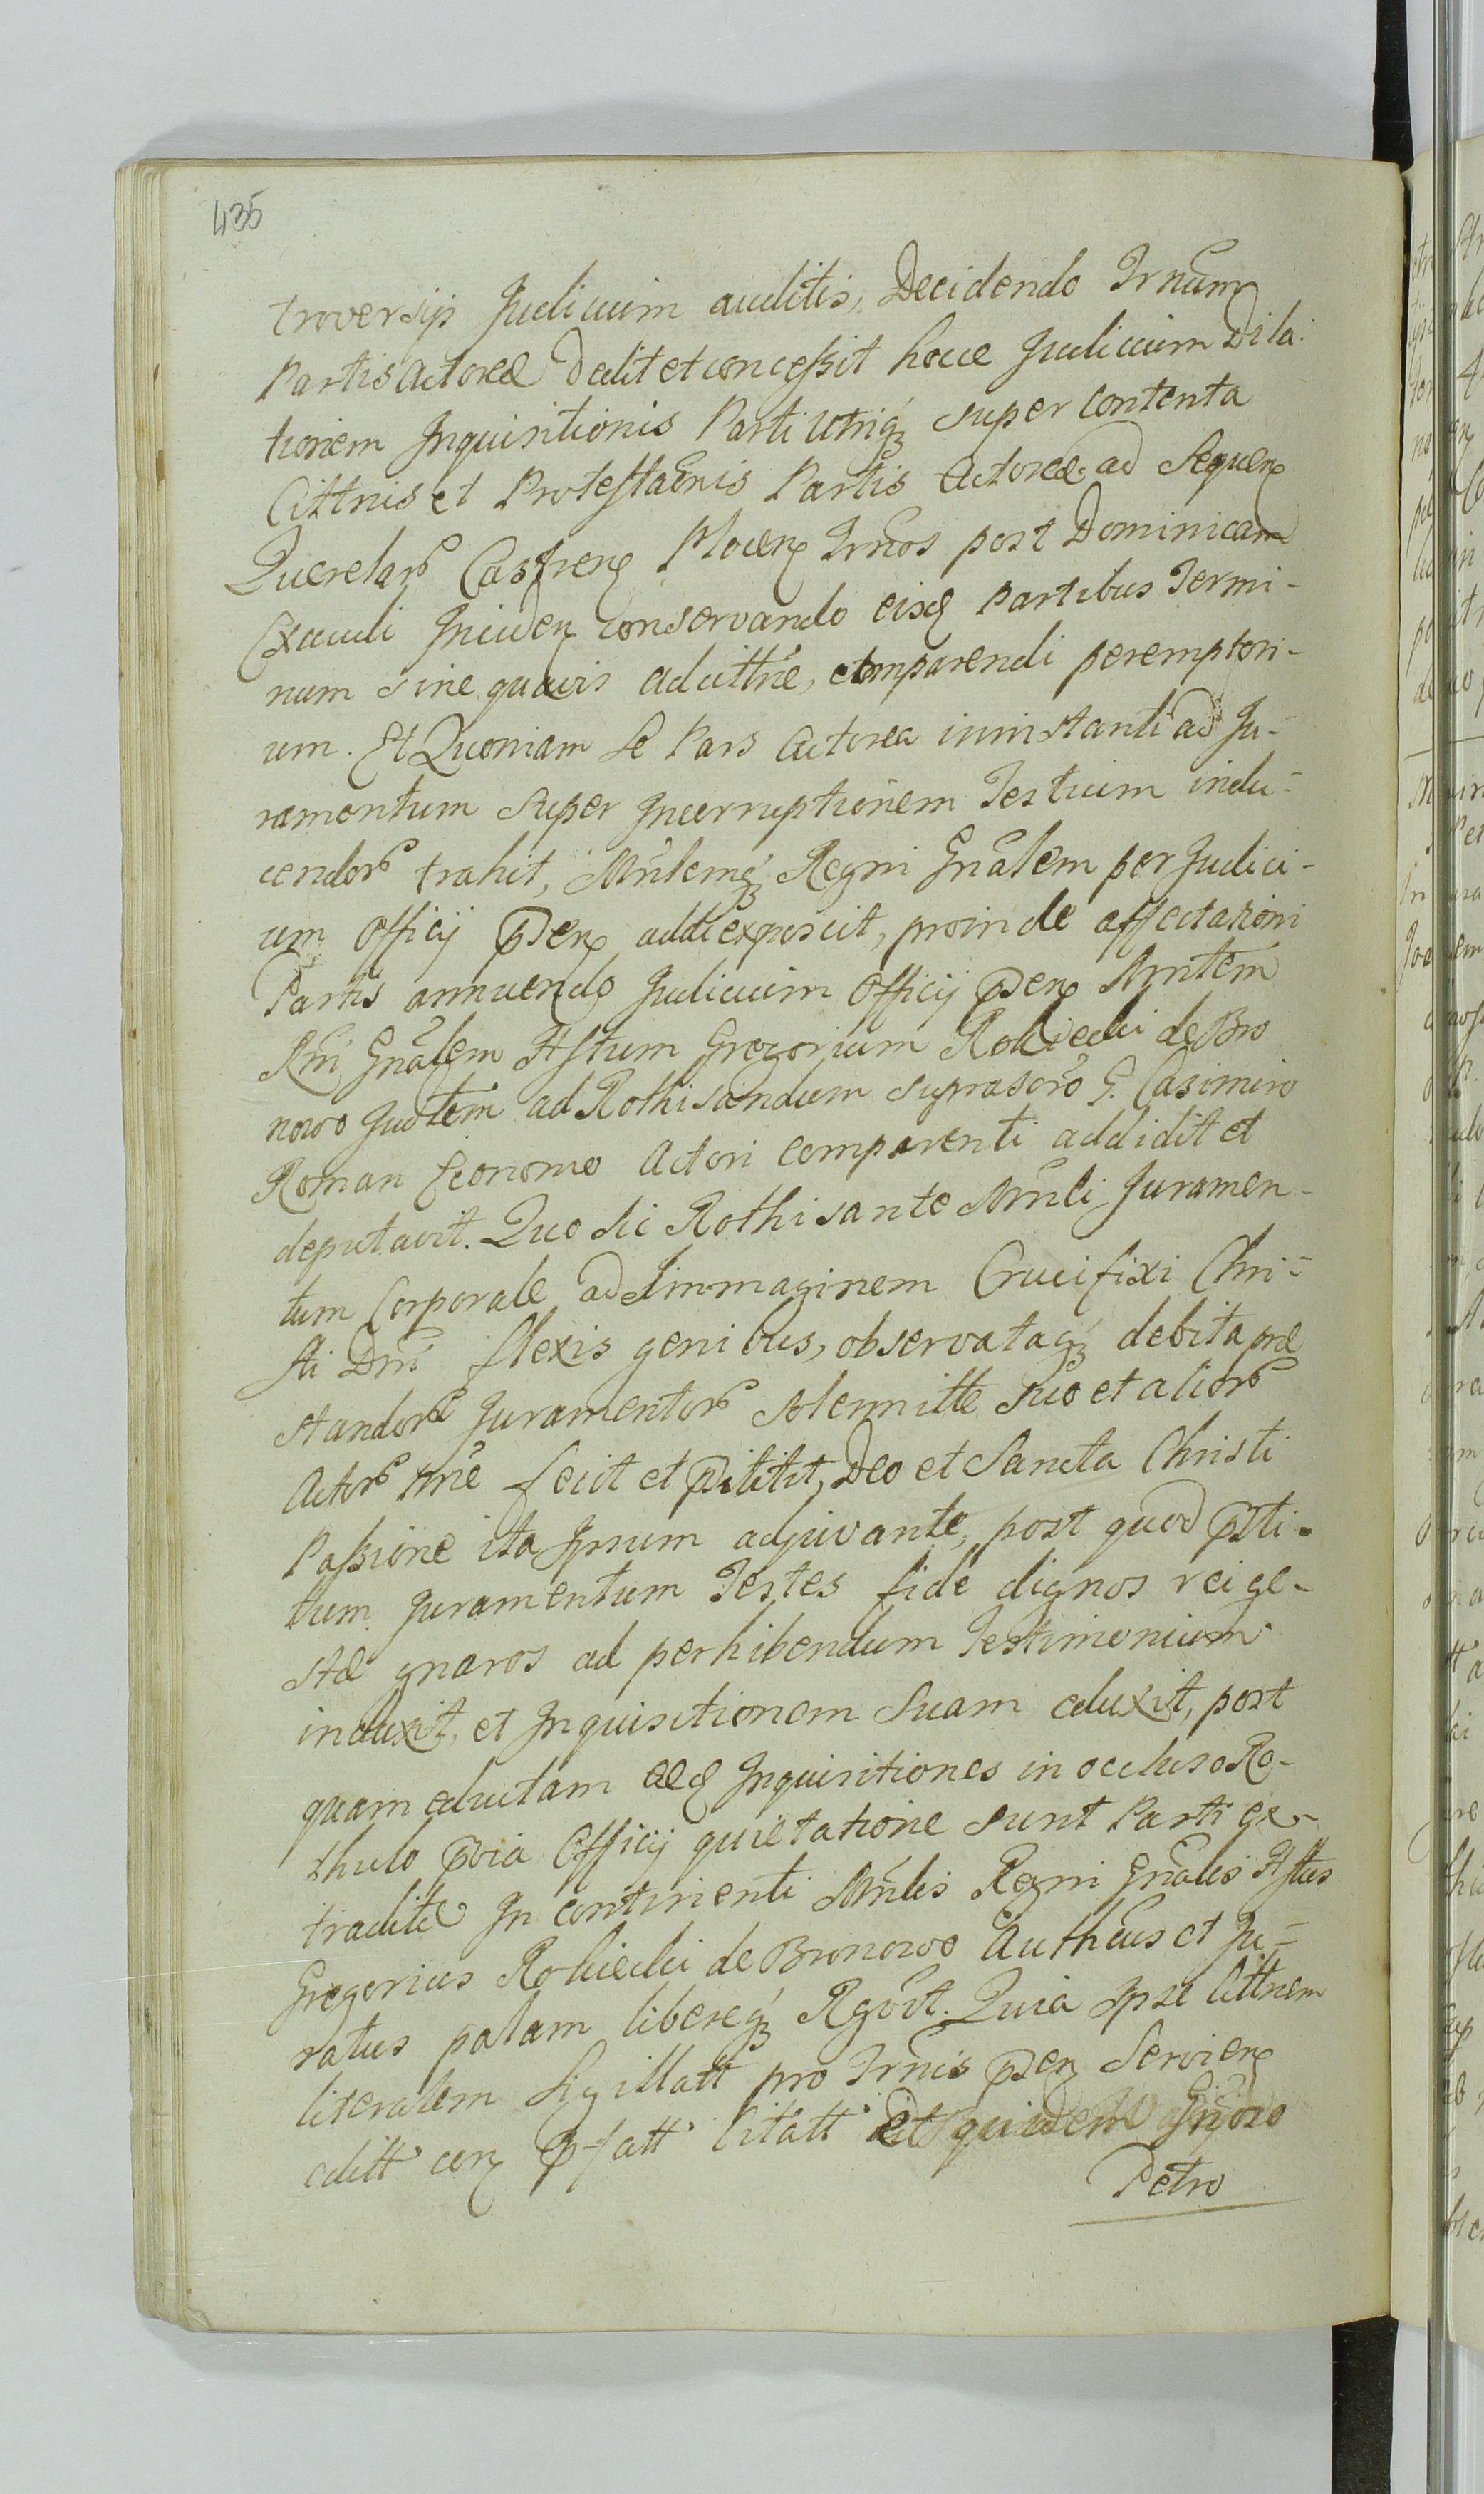 435
troversijs Judicium auditis, Decidendo Trnum
Partis Actoreæ Dedit et concessit hocce Judicium Dila:
tionem Inquisitionis Parti Utriq3 super contenta
Cittnis et Protestaōnis Partis Actoreæ ad Sequen
Querelar Castren Plocen Trnos post Dominicam
Exaudi Inciden conservando eisd partibus Termi-
num sine quavis adcittne, comparendi peremptori-
um. Et Quoniam se Pars Actorea in instanti ad Ju-
ramentum super Incorruptionem Testium indu-
cendor trahit, Mnlemq3 Regni Gnalem per Judici-
um Officij pden addi exposcit, proinde affectationi
Partis annuendo Judicium Officij pden Mnlem
Rni Gnalem Astum Gregorium Rokicki de Bro
nowo Judtem ad Rothisandum suprascro G. Casimiro
Roman Economo Actori comparenti addidit et
deputavit. Quo sic Rothisante Mnli Juramen-
tum Corporale ad Immaginem Crucifixi Chri-
sti Dni flexis genibus, observataq3 debita præ
standor Juramentor solennitte suo et alior
Actor nne fecit et pstitit, Deo et Sancta Christi
Passione ita Ipsum adjuvante, post quod psti-
tum Juramentum Testes fide dignos rei ge-
stæ gnaros ad perhibendum Testimonium
induxit, et Inquisitionem Suam eduxit, post
quam eductam eæd Inquisitiones in occluso Ro-
thulo pvia Officij quietatione sunt Parti ex-
traditæ In continenti Mnlis Regni Gnalis Astus
Gregorius Rokicki de Bronowo Autheus et Ju-
ratus palam libereq3 Rgovit. Quia Ipse Cittnem
literalem Sigillatt pro Trnis pden Servien
editt con p-fatt Citatt Et quidem
Petro